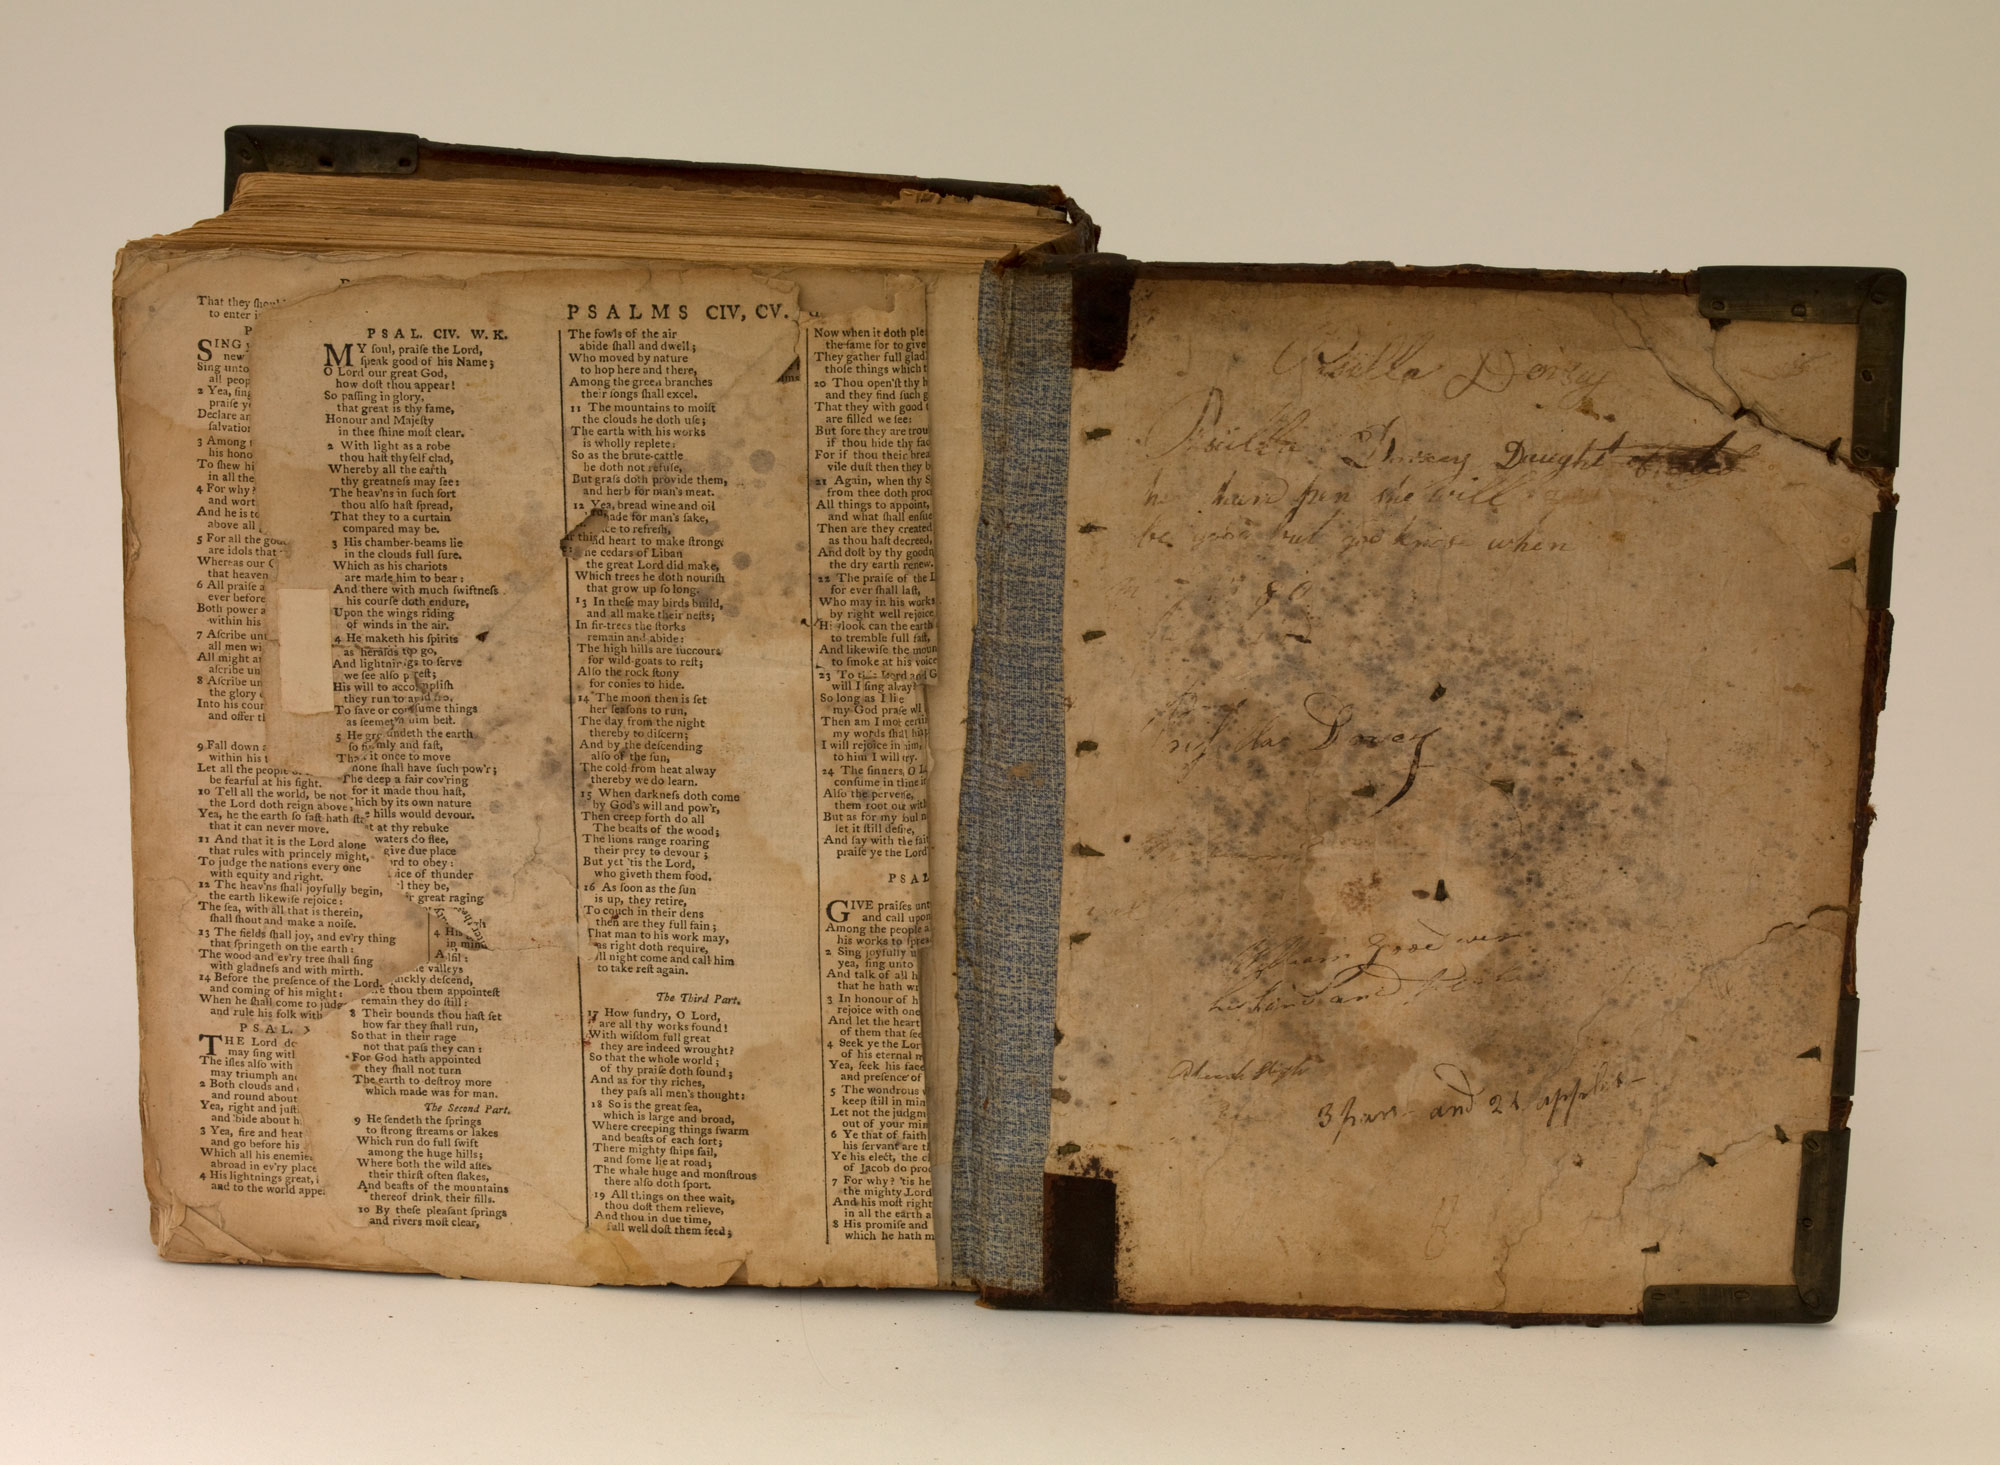 That they
to enter
SING
new
Sing unto
all peop
2 Yea, sing
praise y
Declare an
salvation
3 Among
his hono
To shew hi
in all the
4 For why?
and wort
And he is to
above all
5 For all the
are idols that
Whereas our
that heaven
6 All praise a
ever before
Both power a
within his
7 Ascribe unt
all men wi
All might a
ascribe un
8 Ascribe un
the glory
Into his cour
and offer th
9 Fall down
within his
Let all the people
be fearful at his sight.
10 Tell all the world, be not
the Lord doth reign above:
Yea, he the earth so fast hath
that it can never move.
11 And that it is the Lord alone
that rules with princely might,
To judge the nations every one
with equity and right.
12 The heav'ns shall joyfully begin,
the earth likewise rejoice:
The sea, with all that is therein,
shall shout and make a noise.
13 The fields shall joy, and ev'ry thing
that springeth on the earth:
The wood and ev'ry tree shall sing
with gladness and with mirth.
14 Before the presence of the Lord,
and coming of his might:
When he shall come to judge
and rule his folk with
PSAL.
THE Lord
may sing with
The isles also with
may triumph and
2 Both clouds and
and round about
Yea, right and just
and bide about h
3 Yea, fire and heat
and go before his
Which all his enemies
abroad in ev'ry place
4 His lightnings great,
and to the world appe
PSALMS CIV, CV.
PSAL. CIV. W. K.
MY soul, praise the Lord,
speak good of his Name;
O Lord our great God,
how dost thou appear!
So passing in glory,
that great is thy fame,
Honour and Majesty
in thee shine most clear.
2 With light as a robe
thou hast thyself clad,
Whereby all the earth
thy greatness may see:
The heav'ns in such sort
thou also hast spread,
That they to a curtain
compared may be.
3 His chamber-beams lie
in the clouds full sure,
Which as his chariots
are made him to bear:
And there with much swiftness
his course doth endure,
Upon the wings riding
of winds in the air.
4 He maketh his spirits
as heralds to go,
And lightnings to serve
we see also prest;
His will to accomplish
they run to and fro,
To save or consume things
as seemeth him best.
5 He groundeth the earth
so firmly and fast,
That it once to move
none shall have such pow'r;
The deep a fair cov'ring
for it made thou hast,
which by its own nature
hills would devour.
at thy rebuke
waters do flee,
give due place
to obey:
voice of thunder
they be,
great raging
4 His
in mind
valleys
quickly descend,
thou them appointest
remain they do still:
8 Their bounds thou hast set
how far they shall run,
So that in their rage
not that pass they can:
For God hath appointed
they shall not turn
The earth to destroy more
which made was for man.
The Second Part.
9 He sendeth the springs
to strong streams or lakes
Which run do full swift
among the huge hills;
Where both the wild asses
their thirst often slakes,
And beasts of the mountains
thereof drink their fills.
10 By these pleasant springs
and rivers most clear,
The fowls of the air
abide shall and dwell;
Who moved by nature
to hop here and there,
Among the green branches
their songs shall excel.
11 The mountains to moist
the clouds he doth use;
The earth with his works
is wholly replete:
So as the brute-cattle
he doth not refuse,
But grass doth provide them,
and herb for man's meat.
12 Yea, bread wine and oil
made for man's sake,
to refresh,
and heart to make strong:
The cedars of Liban
the great Lord did make,
Which trees he doth nourish
that grow up so long.
13 In these may birds build,
and all make their nests;
In fir-trees the storks
remain and abide:
The high hills are succours
for wild-goats to rest;
Also the rock stony
for conies to hide.
14 The moon then is set
her seasons to run,
The day from the night
thereby to discern;
And by the descending
also of the sun,
The cold from heat alway
thereby we do learn.
15 When darkness doth come
by God's will and pow'r,
Then creep forth do all
The beasts of the wood;
The lions range roaring
their prey to devour;
But yet 'tis the Lord,
who giveth them food.
16 As soon as the sun
is up, they retire,
To couch in their dens
then are they full fain;
That man to his work may,
as right doth require,
Till night come and call him
to take rest again.
The Third Part.
17 How sundry, O Lord,
are all thy works found!
With wisdom full great
they are indeed wrought?
So that the whole world
of thy praise doth sound;
And as for thy riches,
they pass all men's thought:
18 So is the great sea,
which is large and broad,
Where creeping things swarm
and beasts of each sort;
There mighty ships sail,
and some lie at road;
The whale huge and monstrous
there also doth sport.
19 All things on thee wait,
thou dost them relieve,
And thou in due time,
full well dost them feed;
Now when it doth ple
the same for to give
They gather full glad
those things which t
20 Thou open'st thy h
and they find such g
That they with good
are filled we see:
But sore they are trou
if thou hide thy fac
For if thou their brea
vile dust then they b
21 Again, when thy S
from thee doth proc
All things to appoint,
and what shall ensue
Then are they created
as thou hast decreed,
And dost by thy goodn
the dry earth renew.
22 The praise of the L
for ever shall last,
Who may in his works
by right well rejoice
His look can the earth
to tremble full fast,
And likewise the moun
to smoke at his voice
23 To this Lord and G
will I sing alway?
So long as I live
my God praise will
Then am I most certain
my words shall him
I will rejoice in him,
to him I will cry.
24 The sinners, O L
consume in thine
Also the perverse,
them root out with
But as for my soul n
let it still desire,
And say with the fai
praise ye the Lord
PSAL
GIVE praises unt
and call upon
Among the people
his works to spre
2 Sing joyfully
yea, sing unto
And talk of all h
that he hath w
3 In honour of h
rejoice with one
And let the heart
of them that see
4 Seek ye the Lor
of his eternal m
Yea, seek his face
and presence of
5 The wondrous
keep still in min
Let not the judgm
out of your min
6 Ye that of faith
his servant are
Ye his elect, the c
of Jacob do proc
7 For why? 'tis he
the mighty Lord
And his most right
in all the earth a
8 His promise and
which he hath m
Prisilla Dorsey
Prisilla Dorsey Daught
hand pen she will
be good but god knose when
Dorsey
William Goodwin
his hand and
3 pars and 21 appls